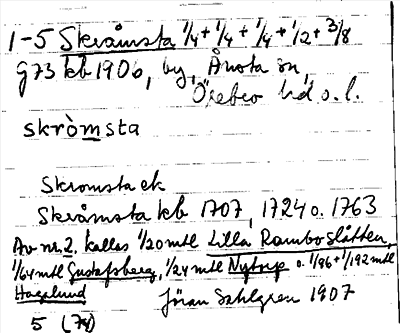 1-5 Skråmsta 1/4+1/4+1/4+1/2+3/8
G73 kb 1906, by, Ånsta sn,
Örebro hd o. l.
skròmsta
Skromsta ek
Skråmsta kb 1707, 1724 o. 1763
Av nr 2. kallas 1/20 mtl Lilla Ramboslåtten,
1/64 mtl Gustafsberg, 1/24 mtl Nytorp o. 1/96+1/192 mtl
Hagalund
Jöran Sahlgren 1907
5 (74)